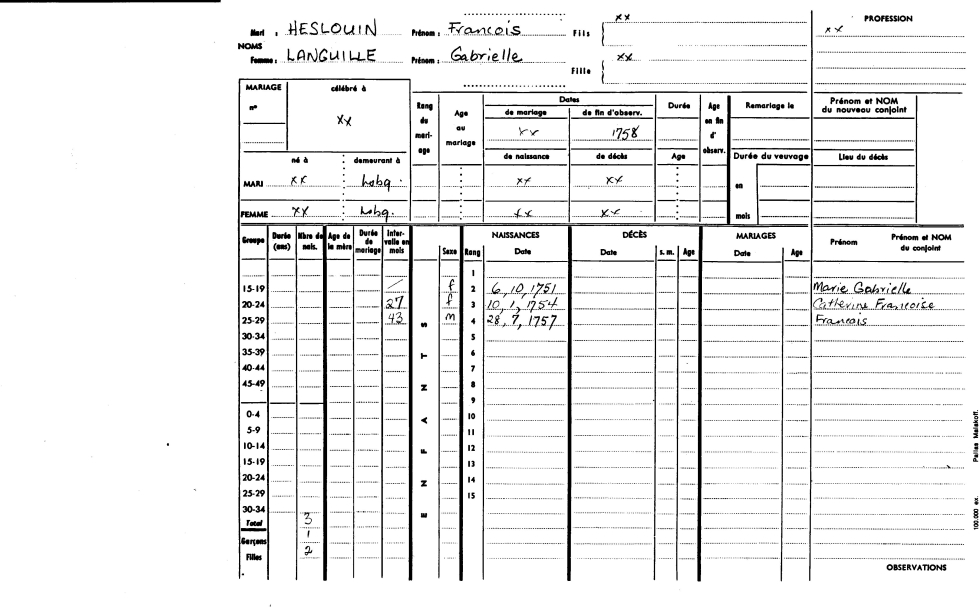 Mari : HESLOUIN Prénom : Francois Fils xx
NOMS
Femme : LANGUILLE Prénom : Gabrielle Fille xx
PROFESSION
xx
MARIAGE célébré à
n° xx
Rang du mari- age
Age au mariage
Dates
de mariage de fin d'observ.
xx 1758
Durée
Age en fin d' observ.
Remariage le
Prénom et NOM du nouveau conjoint
né à demeurant à de naissance de décès Age Durée du veuvage Lieu du décès
MARI xx hobq. xx xx en
FEMME xx hobq. xx xx mois
Groupe Durée (ans) Nbre de nais. Age de la mère Durée de mariage Inter- valle en mois
ENFANTS
Sexe Rang
NAISSANCES Date
DÉCÈS Date s. m. Age
MARIAGES Date Age
Prénom Prénom et NOM du conjoint
1
15-19 / f 2 6, 10, 1751 Marie Gabrielle
20-24 27 f 3 10, 1, 1754 Catherine Francoise
25-29 43 m 4 28, 7, 1757 Francois
30-34 5
35-39 6
40-44 7
45-49 8
9
0-4 10
5-9 11
10-14 12
15-19 13
20-24 14
25-29 15
30-34
Total 3
Garçons 1
Filles 2
OBSERVATIONS
100.000 ex. Pallas Malakoff.